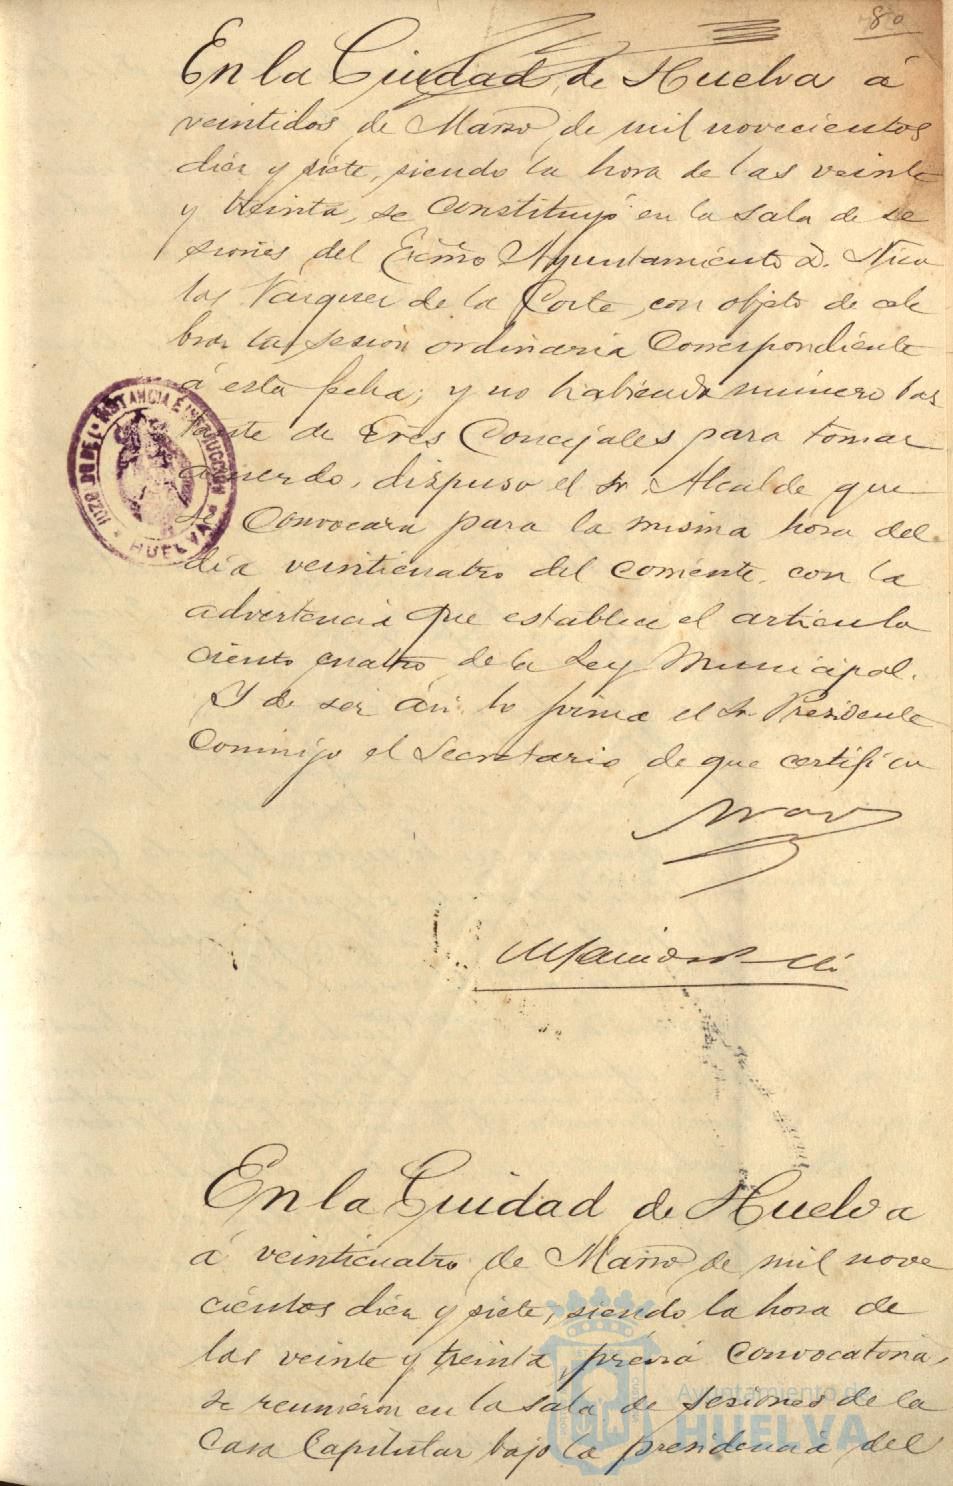 80
En la Ciudad de Huelva á
veintidos de Marzo de mil novecientos
diez y siete, siendo la hora de las veinte
y treinta, se constituyó en la sala de se
siones del Excmo Ayuntamiento D. Nico
las Vazquez de la Corte, con objeto de cele
brar la sesión ordinaria correspondiente
á esta fecha; y no habiendo número bas
tante de Sres Concejales para tomar
acuerdo, dispuso el Sr. Alcalde que
se convocara para la misma hora del
día veinticuatro del corriente, con la
advertencia que establece el articulo
ciento cuatro de la Ley Municipal.
Y de ser así lo firma el Sr Presidente
conmigo el Secretario, de que certifico
JUZGDO DE 1ª INSTANCIA E INSTRUCCIÓN
HUELVA
En la Ciudad de Huelva
á veinticuatro de Marzo de mil nove
cientos diez y siete, siendo la hora de
las veinte y treinta, prévia convocatoria,
se reunieron en la sala de sesiones de la
Casa Capitular bajo la presidencia del
Ayuntamiento de
HUELVA